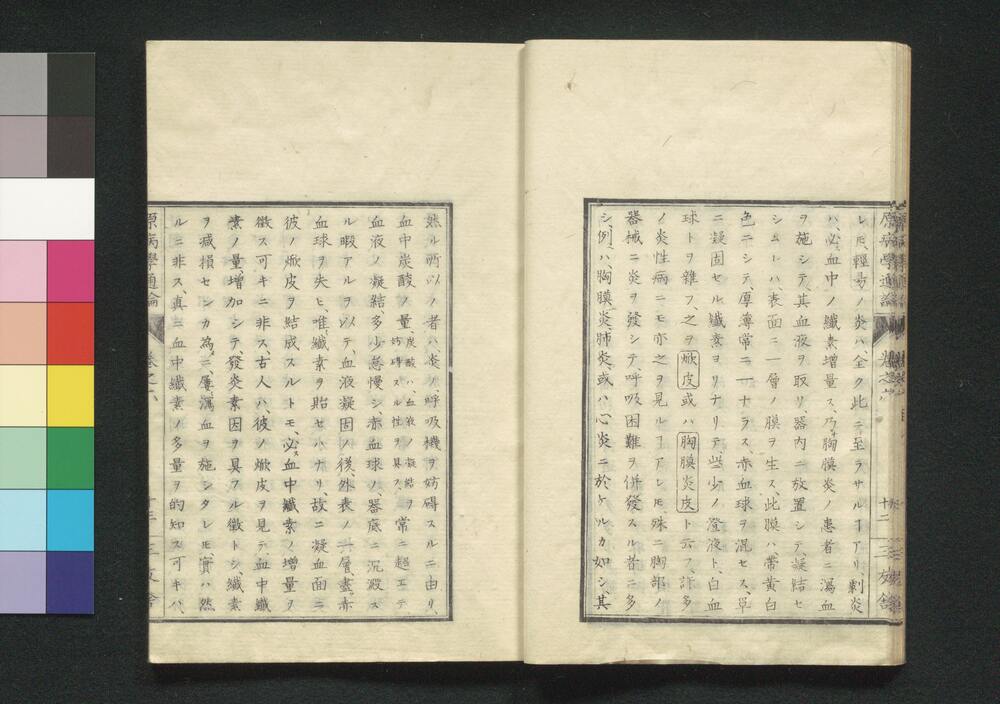 原病學通論
卷之六
十二
三友舎
レ𪜈、輕昜ノ炎ハ全ク此ニ至ラサルヿアリ、剩炎
ハ、必血中ノ纖素增量ス、乃胸膜炎ノ患者ニ瀉血
ヲ施シテ、其血液ヲ取リ、器內ニ放置シテ、凝結セ
シムレハ、表面ニ一層ノ膜ヲ生ス、此膜ハ、帶黄白
色ニシテ、厚薄常ニ一ナラス、赤血球ヲ混セス、單
ニ凝固セル纖素ヨリナリテ、些少ノ澄液ト、白血
球トヲ雜フ、之ヲ焮皮或ハ胸膜炎皮ト云フ、許多
ノ炎性病ニモ亦之ヲ見ルヿアレ𪜈、殊ニ胸部ノ
器械ニ炎ヲ發シテ、呼吸困難ヲ併發スル者ニ多
シ、例ハ胸膜炎肺炎或ハ心炎ニ於ケルカ如シ、其
然ル所以ノ者ハ炎ノ呼吸機ヲ妨碍スルニ由リ、
血中炭酸ノ量、炭酸ハ血液ノ凝結ヲ妨碍スル性ヲ具ス、常ニ超エテ、
血液ノ凝結、多少怠慢シ、赤血球ノ、器底ニ沉澱ス
ル暇アルヲ以テ、血液凝固ノ後、外表ノ一層、盡ク赤
血球ヲ失ヒ、唯纖素ヲ貽セハナリ、故ニ凝血面ニ
彼ノ焮皮ヲ結成スルトモ、必血中纖素ノ增量ヲ
徵ス可キニ非ス、古人ハ、彼ノ焮皮ヲ見テ、血中纖
素ノ量、增加シテ、發炎素因ヲ具フル徵トシ、纖素
ヲ減損センカ為ニ、屢瀉血ヲ施シタレ𪜈、實ハ然
ルニ非ス、真ニ血中纖素ノ多量ヲ的知ス可キハ、
原病學通論
卷之六
三友舎